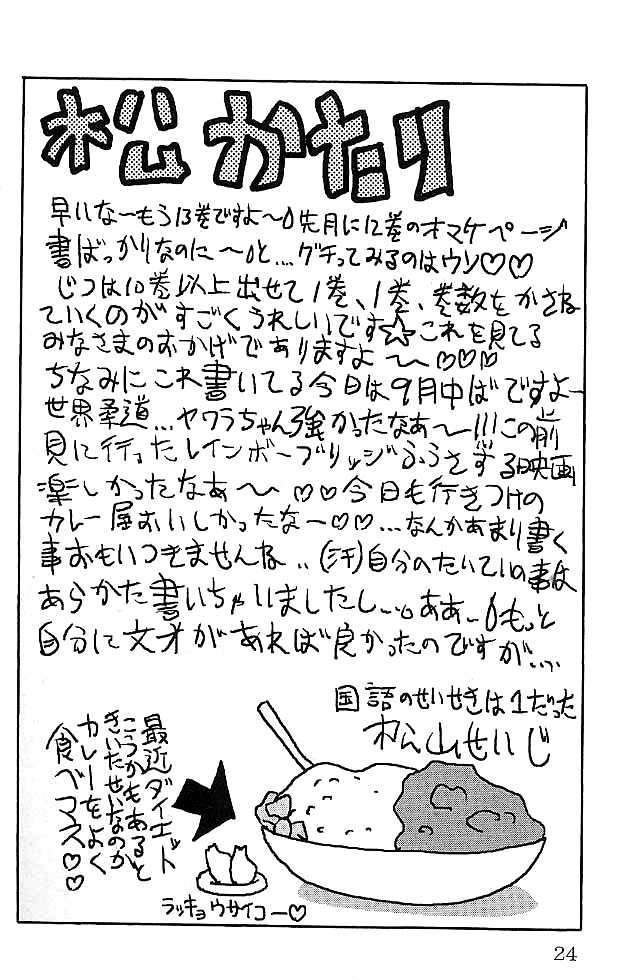 松かたり
早いな〜もう13巻ですよ〜先月に12巻のオマケページ
書ばっかりなのに〜と…グチってみるのはウソ♡♡
じつは10巻以上出せて1巻、1巻、巻数をかさね
ていくのがすごくうれしいです☆これを見てる
みなさまのおかげでありますよ〜♡♡♡
ちなみにこれ書いてる今日は9月中ばですよ〜
世界柔道…ヤワラちゃん強かったなぁ〜!!!この前
見に行ったレインボーブリッジふうさする映画
楽しかったなぁ〜♡♡今日も行きつけの
カレー屋おいしかったな〜♡♡…なんかあまり書く
事おもいつきませんね..(汗)自分のたいていの事は
あらかた書いちゃいましたし…。ああ〜もっと
自分に文才があれば良かったのですが…
国語のせいせきは1だった
松山せいじ
最近ダイエット
こうかもあると
きいたせいなのか
カレーをよく
食べマス♡♡
ラッキョウサイコー♡
24